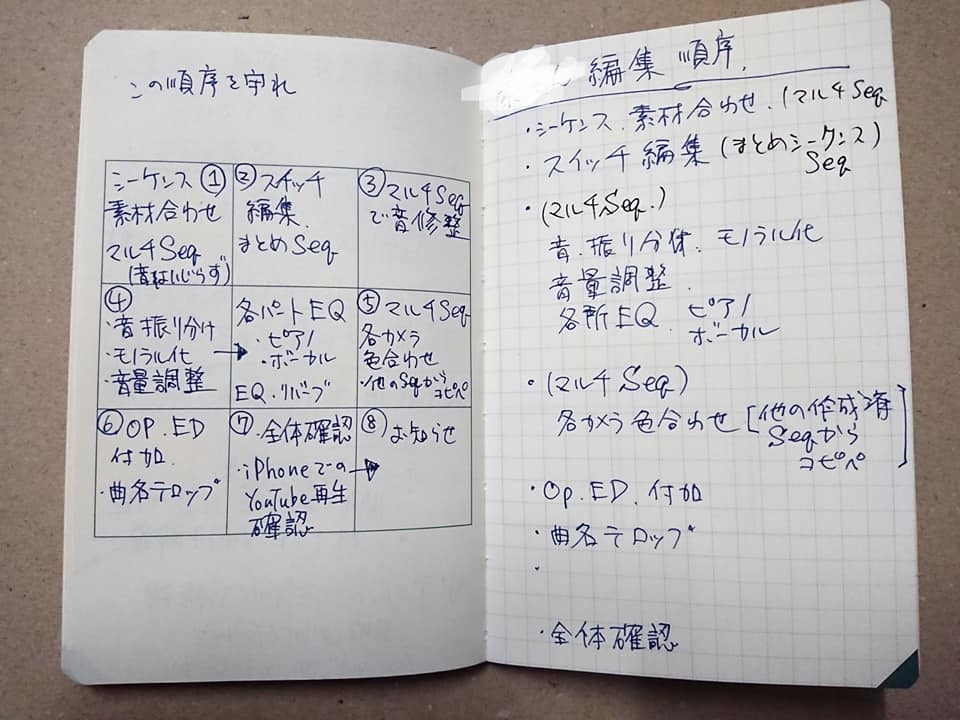 この順序を守れ
シーケンス ①
素材合わせ
マルチSeq
(音はいじらず)
② スイッチ
編集.
まとめSeq
③ マルチSeq
で音修整
④
・音振り分け
・モノラル化
・音量調整
各パートEQ
・ピアノ
・ボーカル
EQ.リバーブ
⑤ マルチSeq
各カメラ
色合わせ
・他のSeqから
コピペ
⑥ OP.ED
付加.
・曲名テロップ
⑦ ・全体確認
・iPhoneでの
YouTube再生
確認
⑧ お知らせ
編集 順序.
・シーケンス.素材合わせ.(マルチSeq
・スイッチ編集(まとめシーケンス)
Seq
・(マルチSeq.)
音.振り分け.モノラル化
音量調整.
各所EQ. ピアノ
ボーカル
・(マルチSeq)
各カメラ色合わせ[他の作成済
Seqから
コピペ]
・Op.ED.付加
・曲名テロップ
・
・全体確認